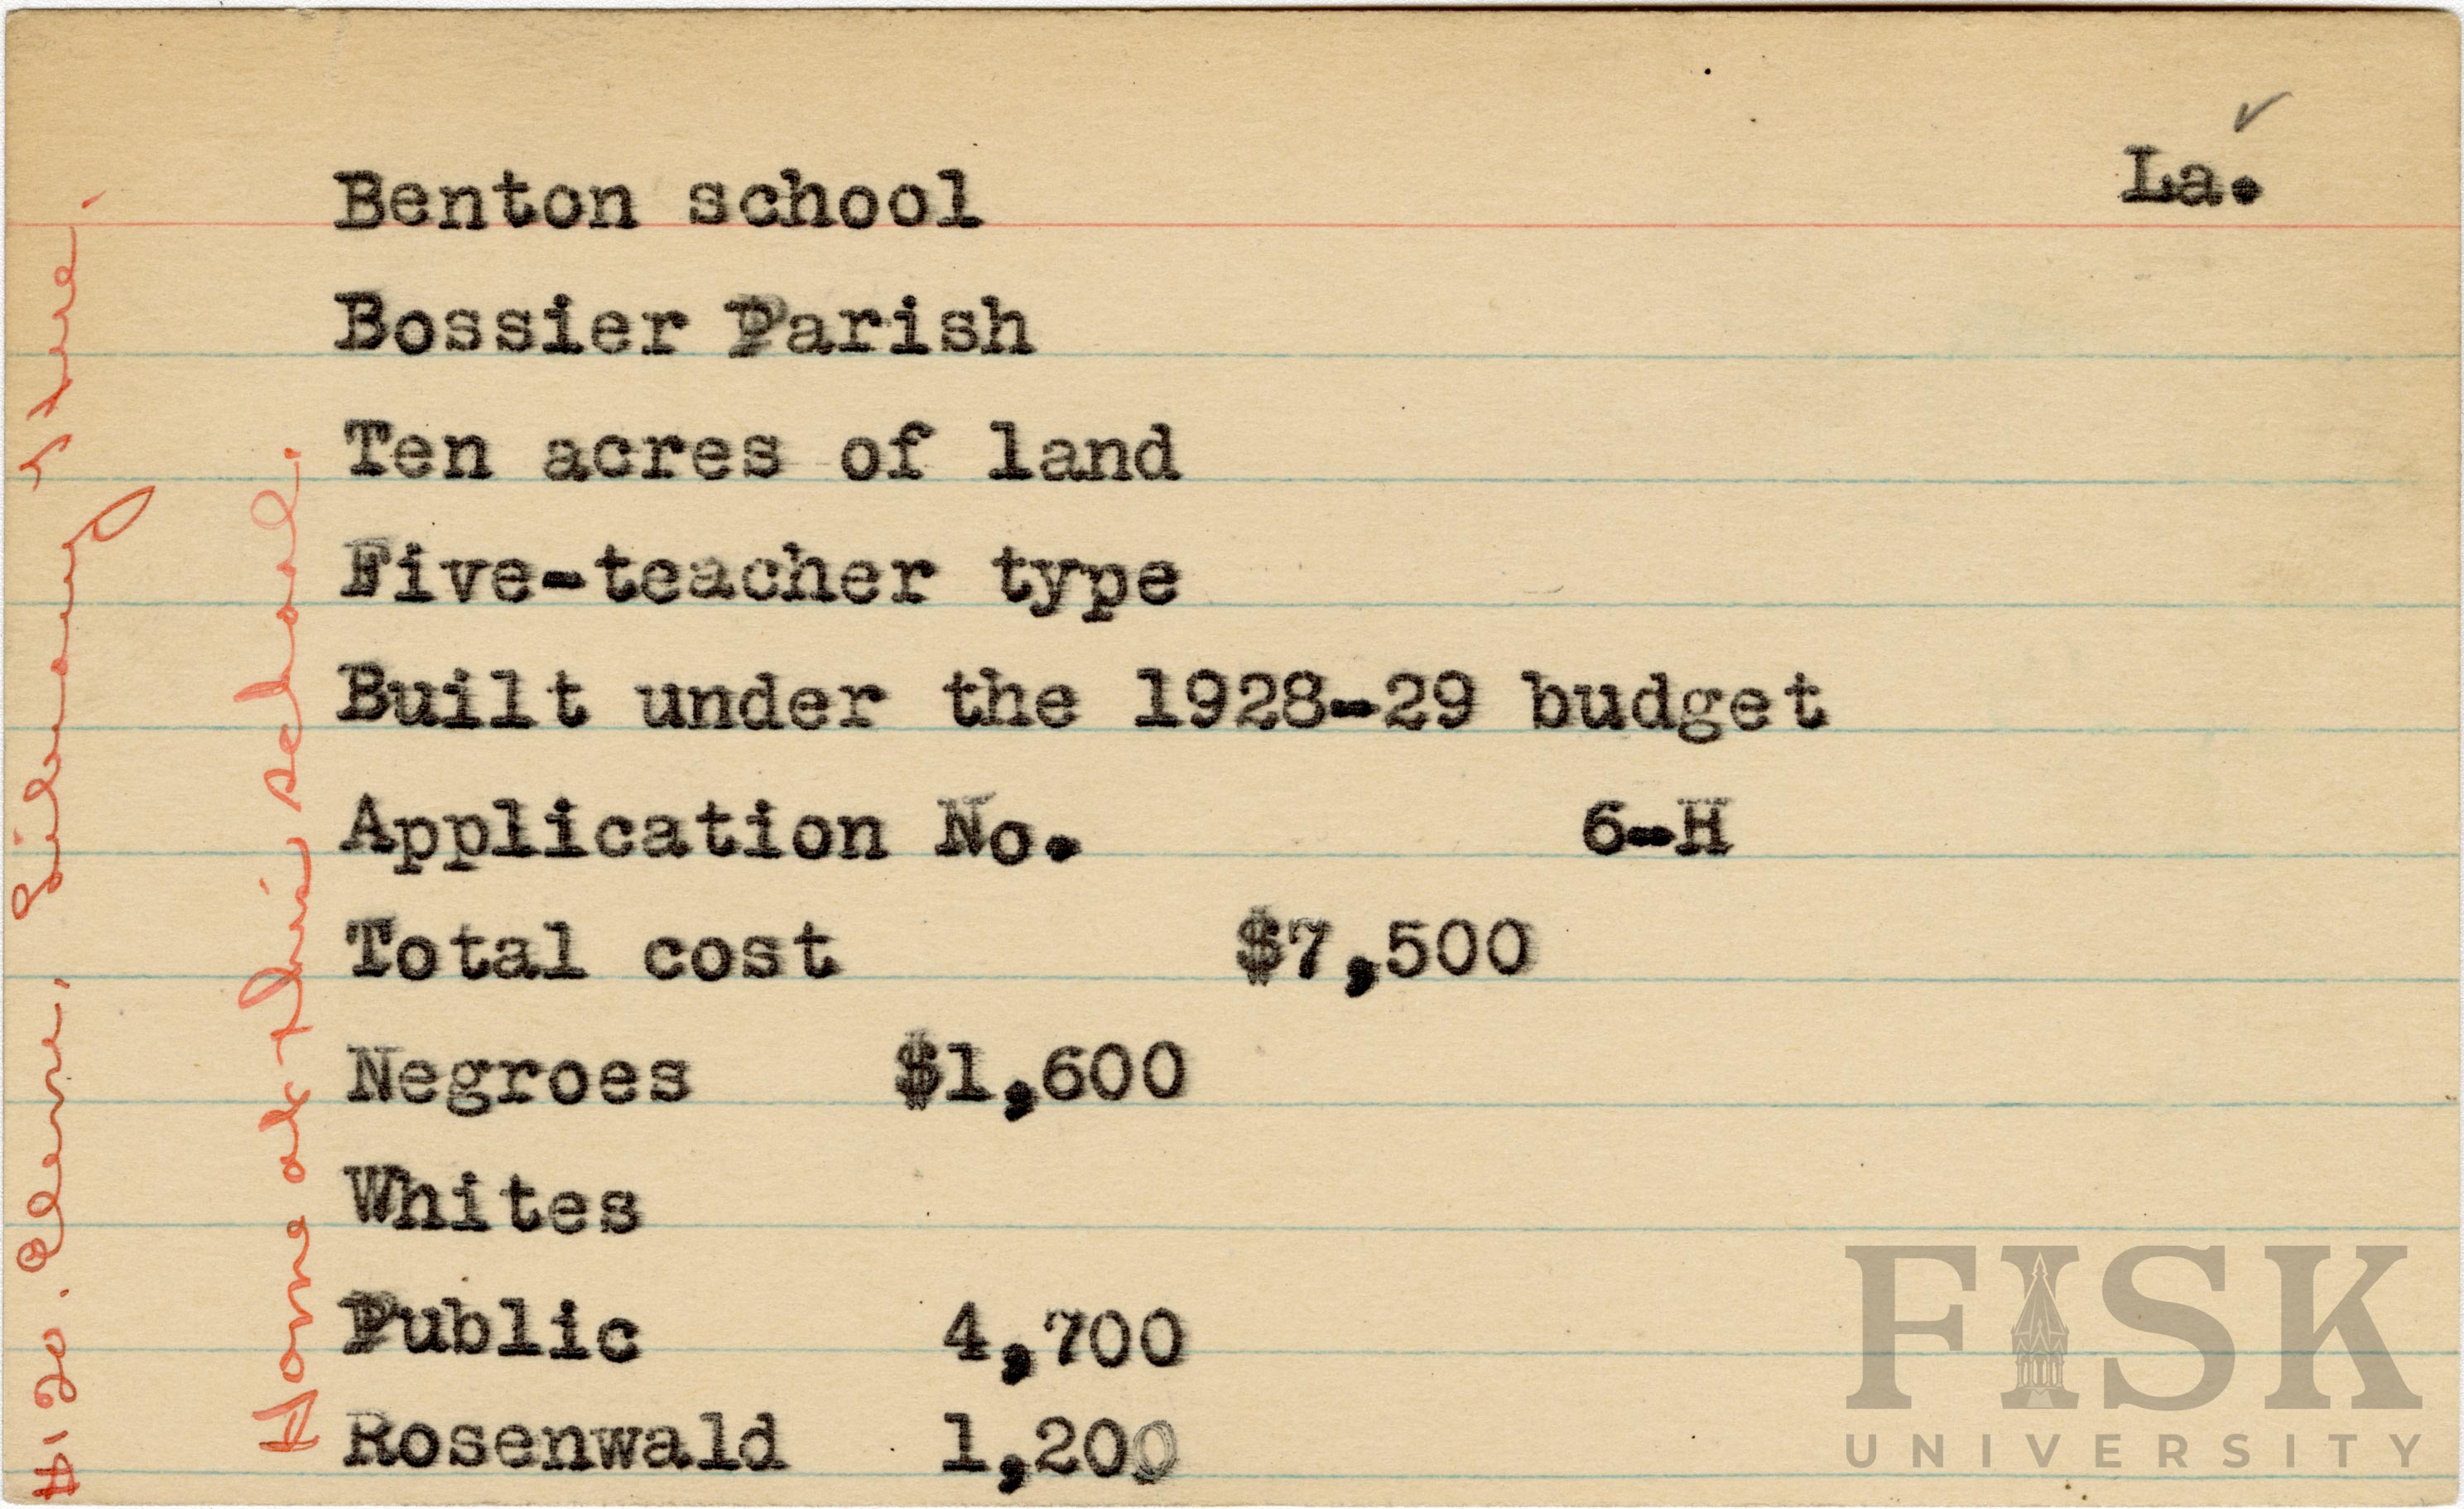 La.
Benton school
Bossier Parish
Ten acres of land
Five-teacher type
Built under the 1928-29 budget
Application No. 6-H
Total cost $7,500
Negroes $1,600
Whites
Public 4,700
Rosenwald 1,200
#120. Elem. Library here.
Home at this school.
FISK
UNIVERSITY